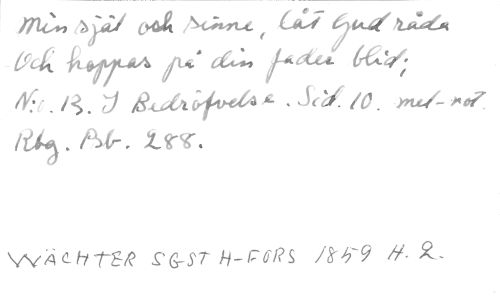 Min själ och sinne, låt Gud råda
Och hoppas på din fader blid;
N:o. 13. I Bedröfvelse. Sid. 10. mel-not.
Rbg. Bb. 288.
WÄCHTER SGST H-FORS 1859 H. 2.